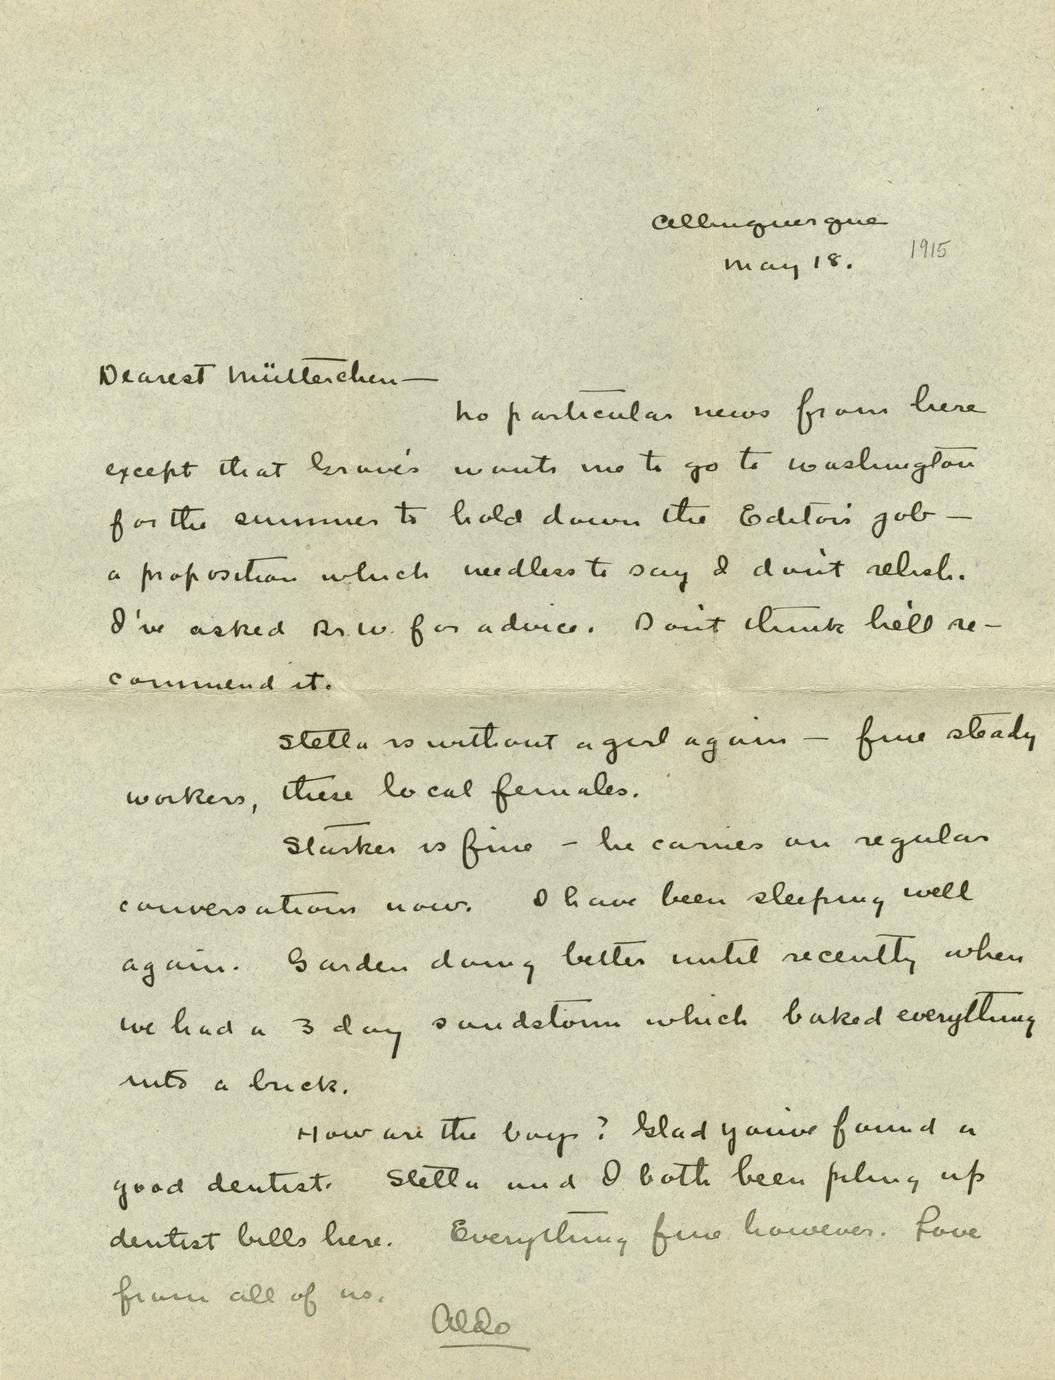 Albuquerque
May 18. 1915
Dearest Mütterchen—
No particular news from here
except that Graves wants me to go to Washington
for the summer to hold down the Editor's job —
a proposition which needless to say I don't relish.
I've asked for advice. Don't think he'll re-
commend it.
Stella is without a girl again — fine steady
workers, these local females.
Starker is fine — he carries on regular
conversations now. I have been sleeping well
again. Garden doing better until recently when
we had a 3 day sandstorm which baked everything
into a brick.
How are the boys? Glad you've found a
good dentist. Stella and I both been piling up
dentist bills here. Everything fine however. Love
from all of us.
Aldo